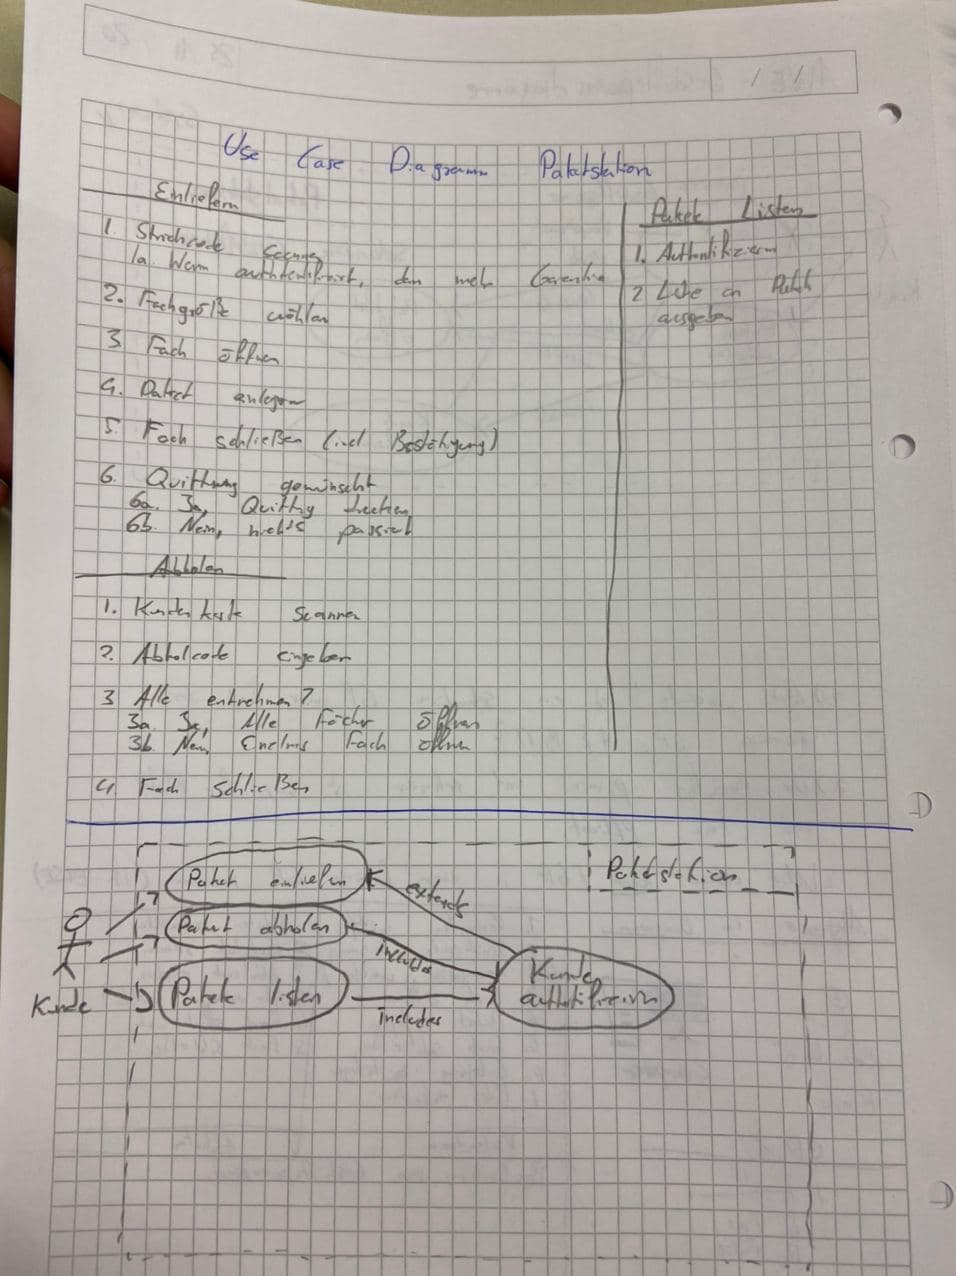 Use Case Diagramm Paketstation
Einliefern
1. Strichcode Scannen
1a. Wenn authentifiziert, dann mehr
2. Fachgröße wählen
3 Fach öffnen
4. Paket anlegen
5. Fach schließen (incl Bestätigung)
6. Quittung gewünscht
6a. Ja, Quittung
6b. Nein, nichts passiert
Abholen
1. Kundenkarte Scannen
2. Abholcode eingeben
3 Alle entnehmen?
3a. Ja, Alle Fächer öffnen
3b. Nein, Fach öffnen
4. Fach schließen
Pakete Listen
1. Authentifizieren
2 Liste an Paket
ausgeben
Paketstation
Paket einliefern
extends
Paket abholen
includes
Kunde
authentifizieren
Kunde
Pakete listen
includes